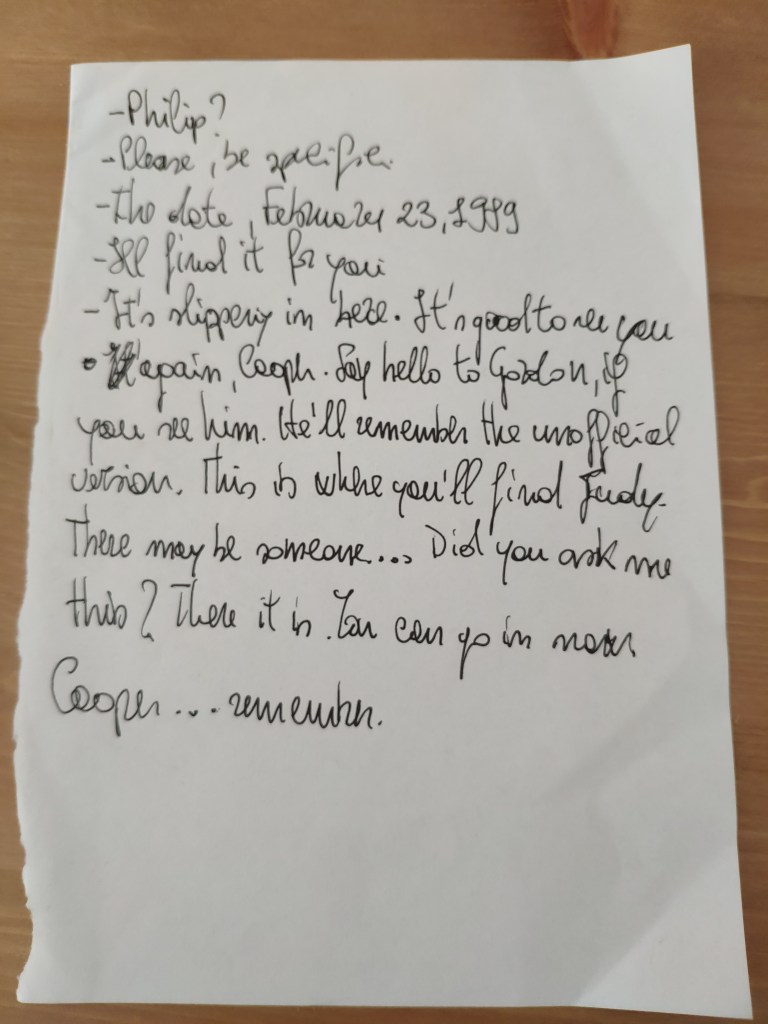 -Philip?
-Please, be specific.
-The date, February 23, 1989
-I'll find it for you
-It's slippery in here. It's good to see you
again, Cooper. Say hello to Gordon, if
you see him. He'll remember the unofficial
version. This is where you'll find Judy.
There may be someone... Did you ask me
this? There it is. You can go in now.
Cooper... remember.